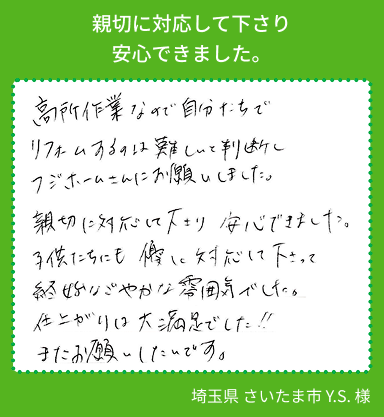 親切に対応して下さり
安心できました。
高所作業なので自分たちで
リフォームするのは難しいと判断し
フジホームさんにお願いしました。
親切に対応して下さり 安心できました。
子供たちにも 優しく対応して下さって
終始なごやかな雰囲気でした。
仕上がりは大満足でした!!
またお願いしたいです。
埼玉県 さいたま市 Y.S. 様